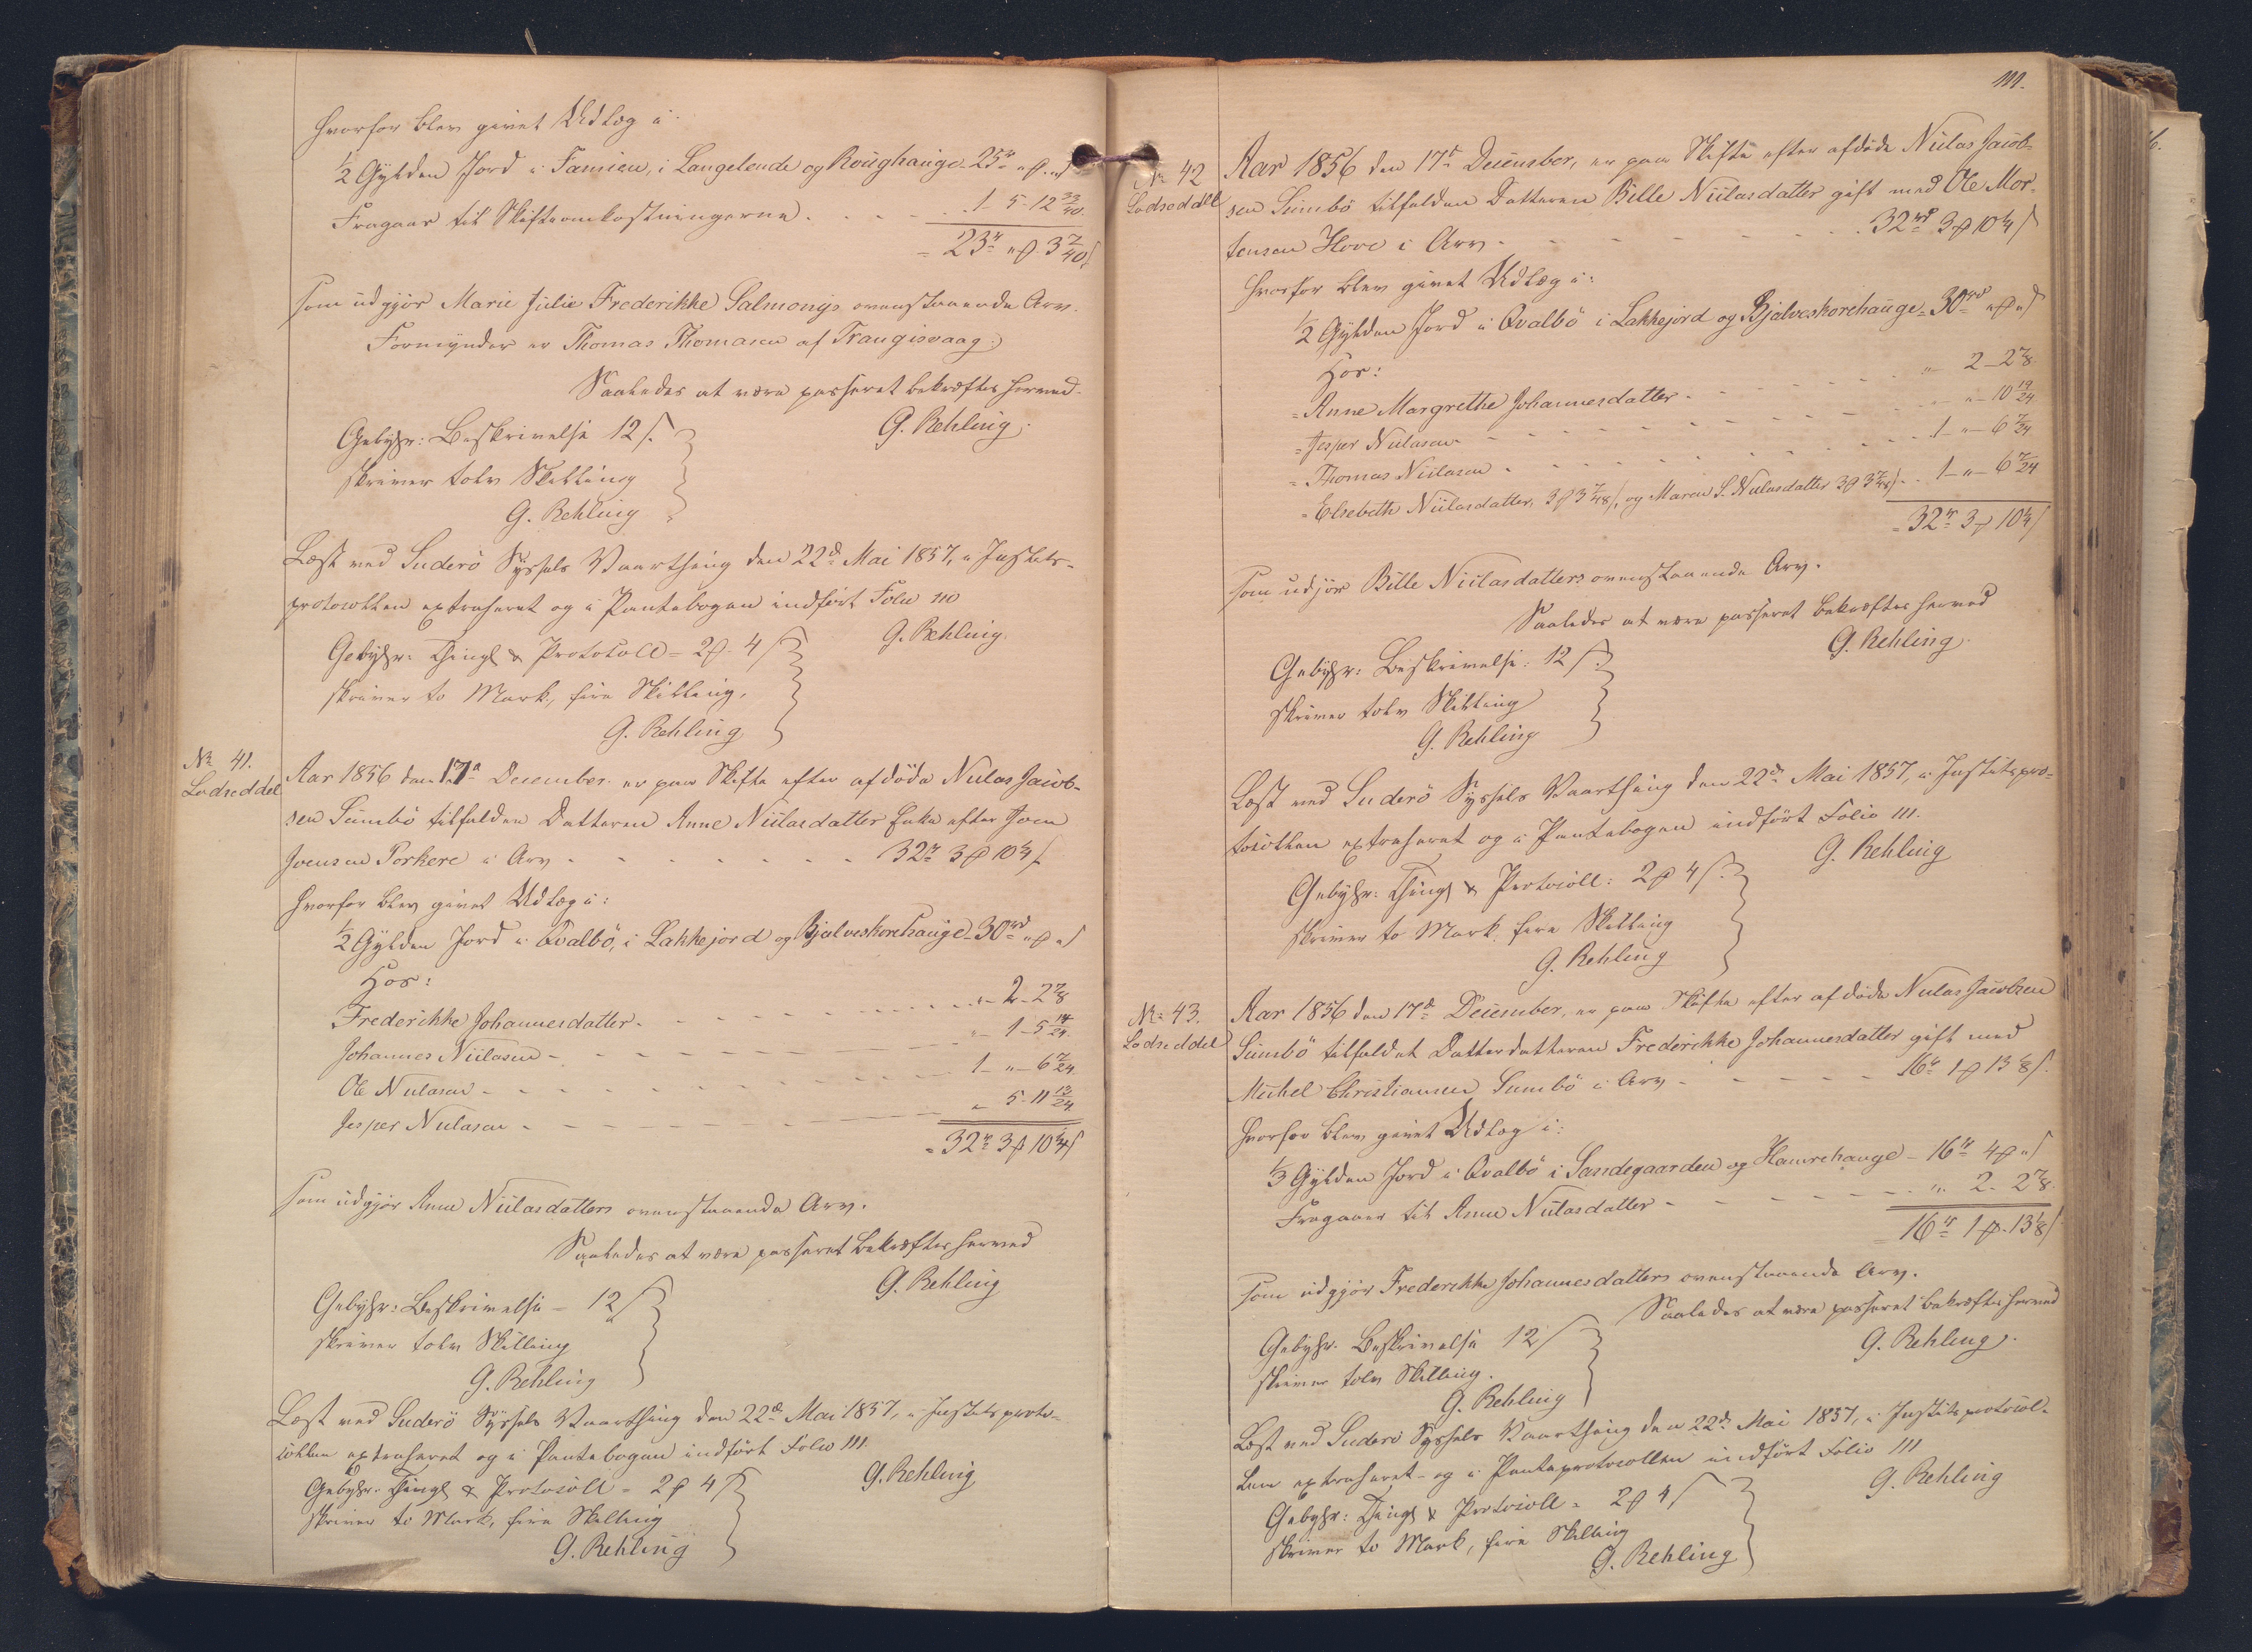 hvorfor blev givet Udlæg i
1/2 Gylden Jord i Famien, i Langelende og Roughauge - 25 rd „ β „ s
Fragaar til Skifteomkostningerne . . . . 1 - 5 - 12 33/40
= 23 r „ β 3 7/40 s
som udgjør Marie Julie Frederikke Salmonys ovenstaaende Arv.
Formynder er Thomas Thomasen af Trangisvaag.
Saaledes at være passeret bekræftes herved
G. Rehling
Gebyhr: Beskrivelse 12 s.
skriver tolv Skilling
G. Rehling
Læst ved Suderö Syssels Vaarthing den 22d Mai 1857, i Justits-
protocollen extraheret og i Pantebogen indført Folio 110
G. Rehling
Gebyhr: Thingl & Protocoll = 2 β 4 s
skriver to Mark, fire Skilling.
G. Rehling
No 41.
Lodseddel
Aar 1856 den 17d December er paa Skifte efter afdöde Niclas Jacob-
sen Sumbö tilfalden Datteren Anne Niclasdatter Enke efter Joen
Joensen Porkere i Arv - - - - 32 r 3 β 10 1/4 s
hvorfor blev givet Udlæg i:
1/2 Gylden Jord i Qvalbö, i Lakkejord og Bjalveskorehauge - 30 rd „ β „ s
Hos:
Frederikke Johannesdatter - - - - „ - 2 - 2 7/8
Johannes Niclasen - - - - „ - 1 - 5 14/24
Ole Niclasen - - - - 1 - „ - 6 7/24
Jesper Niclasen - - - - „ 5 - 11 13/24
= 32 r 3 β 10 1/4 s
som udgjør Anne Niclasdatters ovenstaaende Arv.
Saaledes at være passeret bekræftes herved
G. Rehling
Gebyhr: Beskrivelse = 12 s
skriver tolv Skilling
G. Rehling
Læst ved Suderö Syssels Vaarthing den 22d Mai 1857, i Justitsproto-
collen extraheret og i Pantebogen indført Folio 111.
G. Rehling
Gebyhr: Thingl & Protocoll = 2 β 4 s
skriver to Mark, fire Skilling
G. Rehling
111.
No 42
Lodseddel
Aar 1856 den 17d December, er paa Skifte efter afdöde Niclas Jacob-
sen Sumbö tilfalden Datteren Bille Niclasdatter gift med Ole Mor-
tensen Hove i Arv - - - - 32 rd 3 β 10 1/4 s
hvorfor blev givet Udlæg i:
1/2 Gylden Jord i Qvalbö i Lakkejord og Bjalveskorehauge - 30 rd „ β „ s
Hos:
- Anne Margrethe Johannesdatter - - - - „ - 2 - 2 7/8
- Jesper Niclasen - - - - „ - „ - 10 19/24
- Thomas Niclasen - - - - 1 - „ - 6 7/24
- Elsebeth Niclasdatter, 3 β 3 7/48 s, og Maren S. Niclasdatter 3 β 3 7/48 s - 1 - „ - 6 7/24
= 32 r 3 β 10 1/4 s
som udgjør Bille Niclasdatters ovenstaaende Arv.
Saaledes at være passeret bekræftes herved
G. Rehling
Gebyhr: Beskrivelse: 12 s.
skriver tolv Skilling
G. Rehling
Læst ved Suderö Syssels Vaarthing den 22d Mai 1857, i Justitspro-
tocollen extraheret og i Pantebogen indført Folio 111.
G. Rehling
Gebyhr: Thingl & Protocoll: 2 β 4 s.
skriver to Mark, fire Skilling
G. Rehling
No 43.
Lodseddel
Aar 1856 den 17d December, er paa Skifte efter afdöde Niclas Jacobsen
Sumbö tilfaldet Datterdatteren Frederikke Johannesdatter gift med
Michel Christiansen Sumbö i Arv - - - - 16 r 1 β 13 1/8 s.
hvorfor blev givet Udlæg i:
1/3 Gylden Jord i Qvalbö i Sandegaarden og Hamrehauge - 16 r 4 β „ s
Fragaaer til Anne Niclasdatter - - - - „ 2 - 2 7/8.
16 r 1 β 13 1/8 s
som udgjør Frederikke Johannesdatters ovenstaaende Arv.
Saaledes at være passeret bekræftes herved
G. Rehling
Gebyhr. Beskrivelse 12 s
skriver tolv Skilling.
G. Rehling
Læst ved Suderö Syssels Vaarthing den 22d Mai 1857, i Justitsprotocol-
len extraheret - og i Panteprotocollen indført Folio 111
G. Rehling
Gebyhr: Thingl & Protocoll = 2 β 4 s
skriver to Mark, fire Skilling
G. Rehling